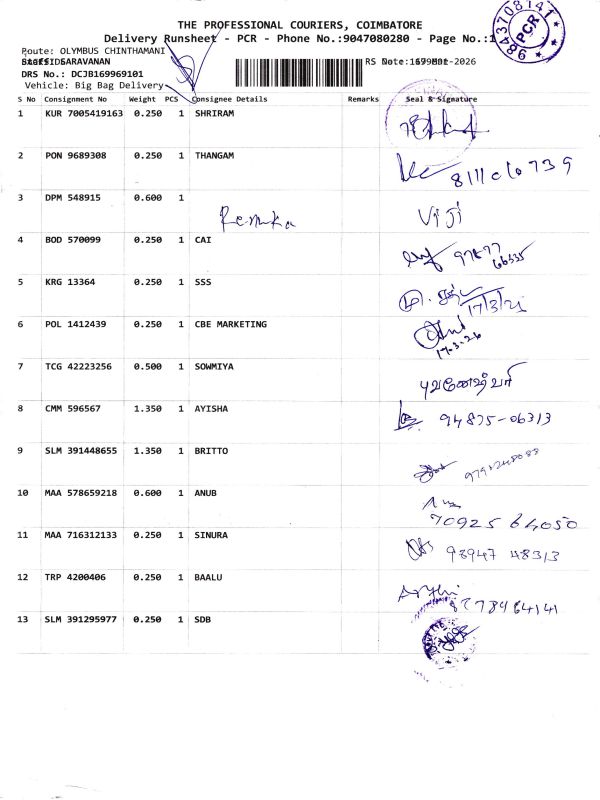 THE PROFESSIONAL COURIERS, COIMBATORE
Delivery Runsheet - PCR - Phone No.:9047080280 - Page No.:1
9843708141 PCR
Route: OLYMBUS CHINTHAMANI
SARAVANAN
DRS No.: DCJB169969101
Vehicle: Big Bag Delivery
S No Consignment No Weight PCS Consignee Details Remarks Seal & Signature
1 KUR 7005419163 0.250 1 SHRIRAM
2 PON 9689308 0.250 1 THANGAM
3 DPM 548915 0.600 1 Renuka Viji
4 BOD 570099 0.250 1 CAI 97877 66335
5 KRG 13364 0.250 1 SSS
6 POL 1412439 0.250 1 CBE MARKETING 17-3-26
7 TCG 42223256 0.500 1 SOWMIYA புவனேஷ்வரி
8 CMM 596567 1.350 1 AYISHA 94875-06313
9 SLM 391448655 1.350 1 BRITTO
10 MAA 578659218 0.600 1 ANUB 70925 64050
11 MAA 716312133 0.250 1 SINURA 98947 48313
12 TRP 4200406 0.250 1 BAALU
13 SLM 391295977 0.250 1 SDB